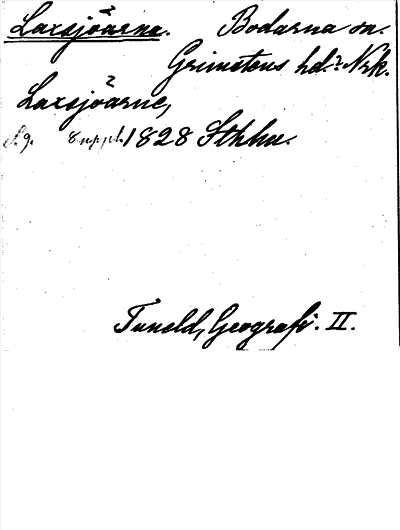 Laxsjöarna. Bodarna sn.
Grimstens hd. Nrk.
Laxsjöarne,
S. 9. 8 uppl. 1828 Sthlm.
Tuneld, Geografi. II.